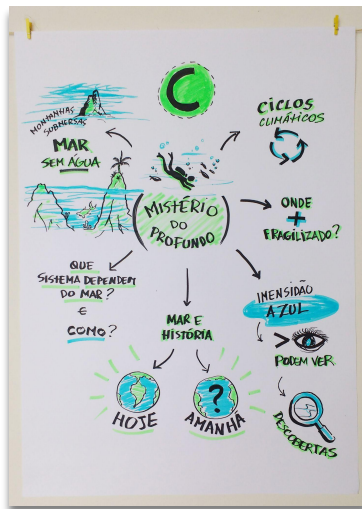 C
MONTANHAS
SUBMERSAS
MAR
SEM ÁGUA
CICLOS
CLIMÁTICOS
(MISTÉRIO
DO
PROFUNDO)
ONDE
+
FRAGILIZADO?
QUE
SISTEMA DEPENDEM
DO MAR?
E
COMO?
MAR E
HISTÓRIA
HOJE
?
AMANHÃ
IMENSIDÃO
AZUL
>
PODEM VER
DESCOBERTAS